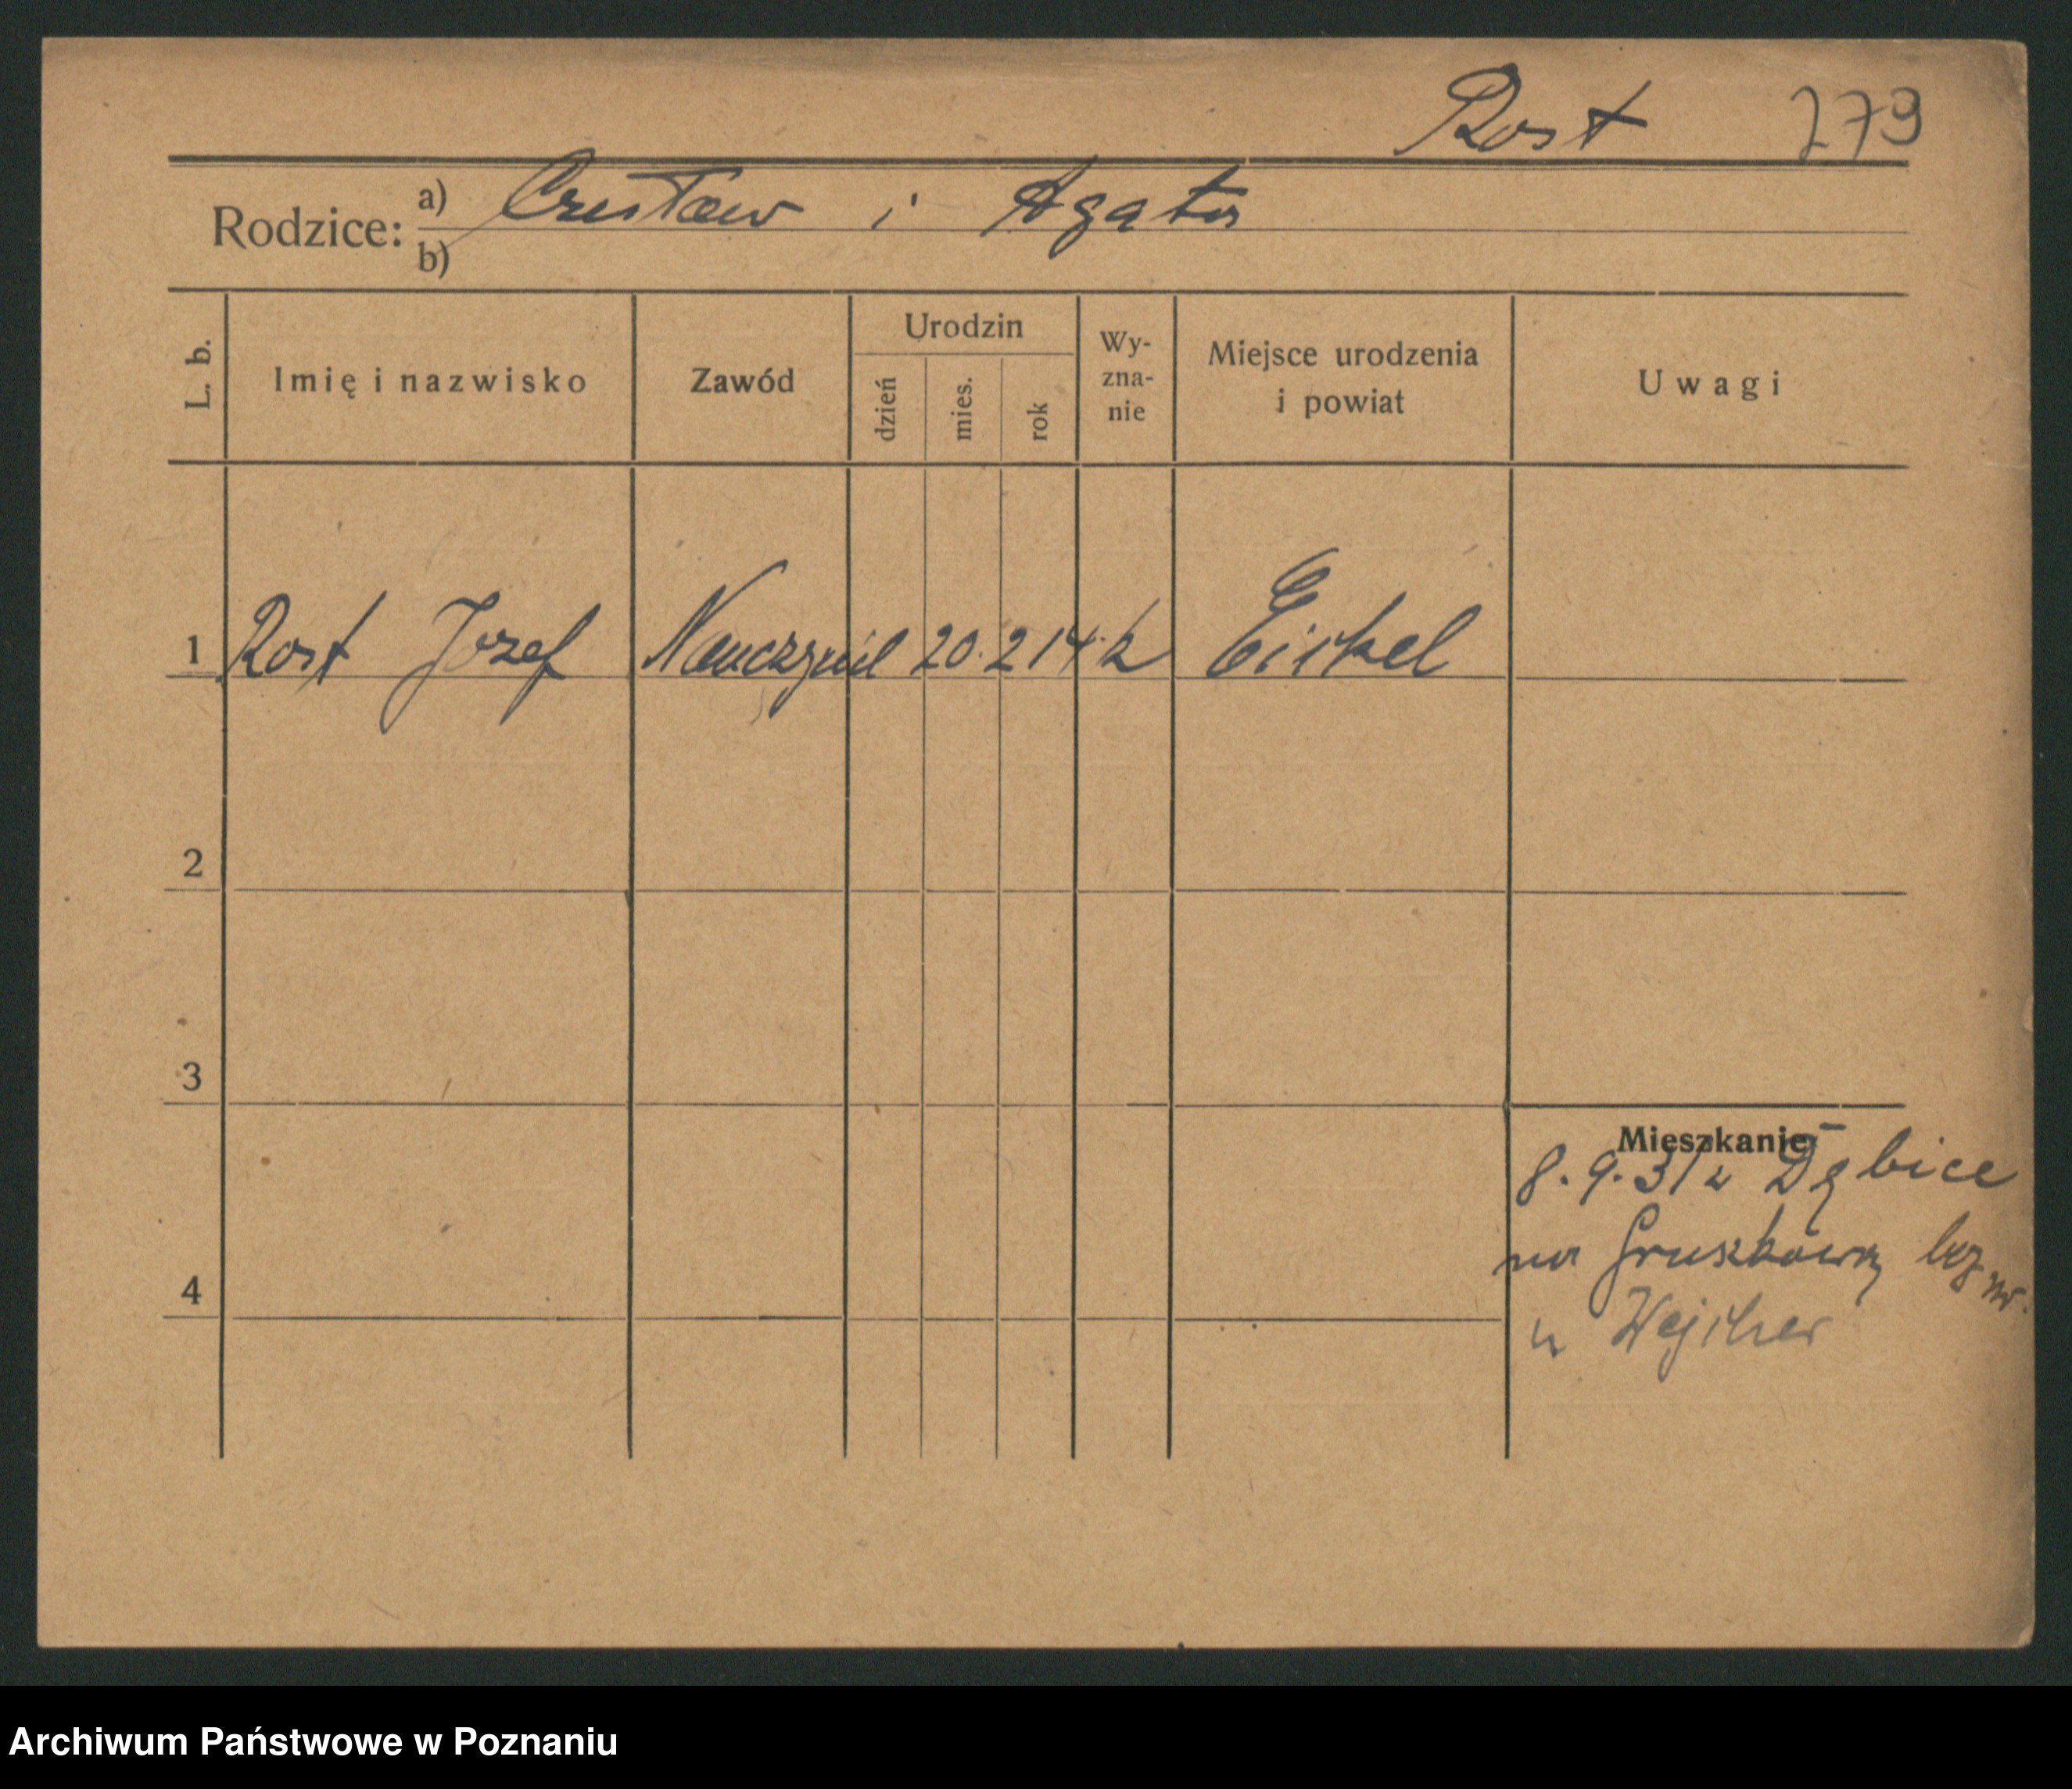 Rost 279
Rodzice: a) Czesław i Agata
b)
L. b.
Imię i nazwisko
Zawód
Urodzin
dzień
mies.
rok
Wy-
zna-
nie
Miejsce urodzenia
i powiat
Uwagi
1 Rost Józef Nauczyciel 20. 2 14. k Eickel
2
3
4
Mieszkanie
8. 9. 31 z Dębice
na Gruszkową bez nr.
u
Archiwum Państwowe w Poznaniu